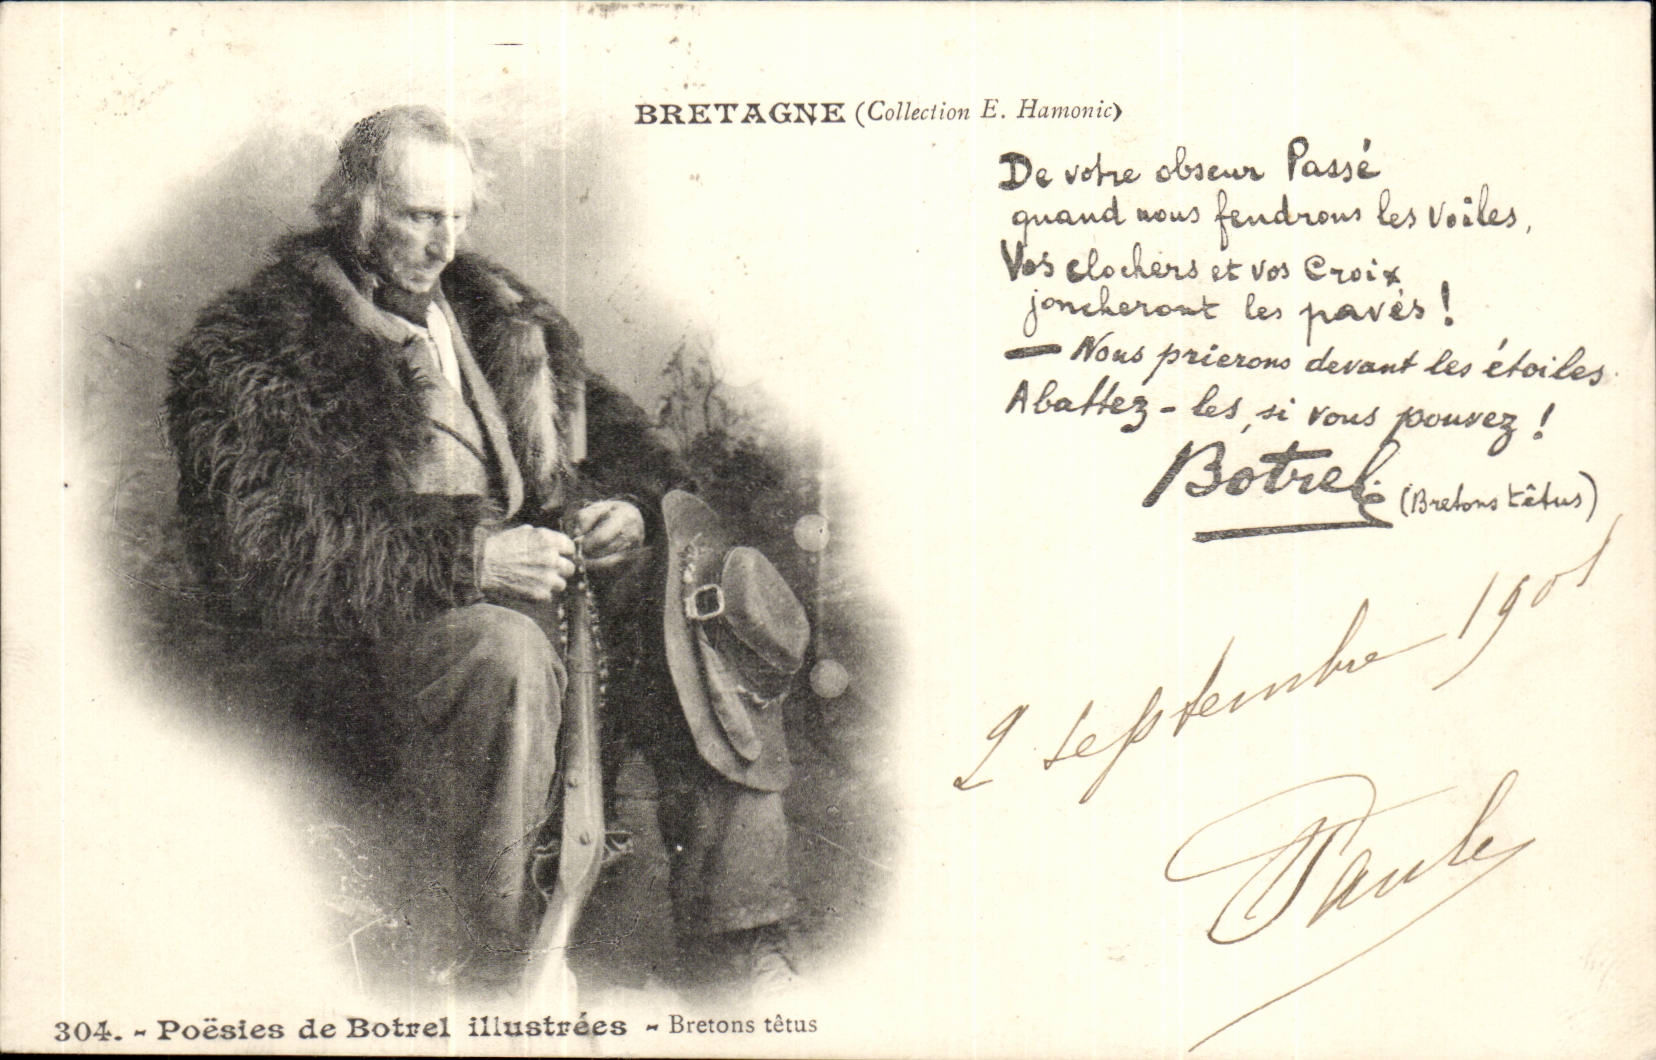 BRETAGNE (Collection E. Hamonic)
De votre obscur Passé
quand nous fendrons les voiles,
Vos clochers et vos Croix
joncheront les pavés !
— Nous prierons devant les étoiles
Abattez-les, si vous pouvez !
Botrel (Bretons têtus)
2 septembre 1901
Paule
304. - Poësies de Botrel illustrées - Bretons têtus